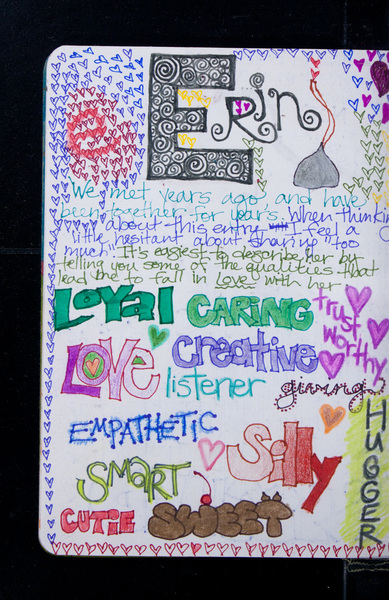 Erin
We met years ago, and have
been together for years. When thinking
about this entry I feel a
little hesitant about sharing "too
much". It's easiest to describe her by
telling you some of the qualities that
lead me to fall in Love with her
Loyal CARING
trust
worthy
LOVE creative
listener
EMPATHETIC Silly
HUGGER
SMART
CUTIE SWEET